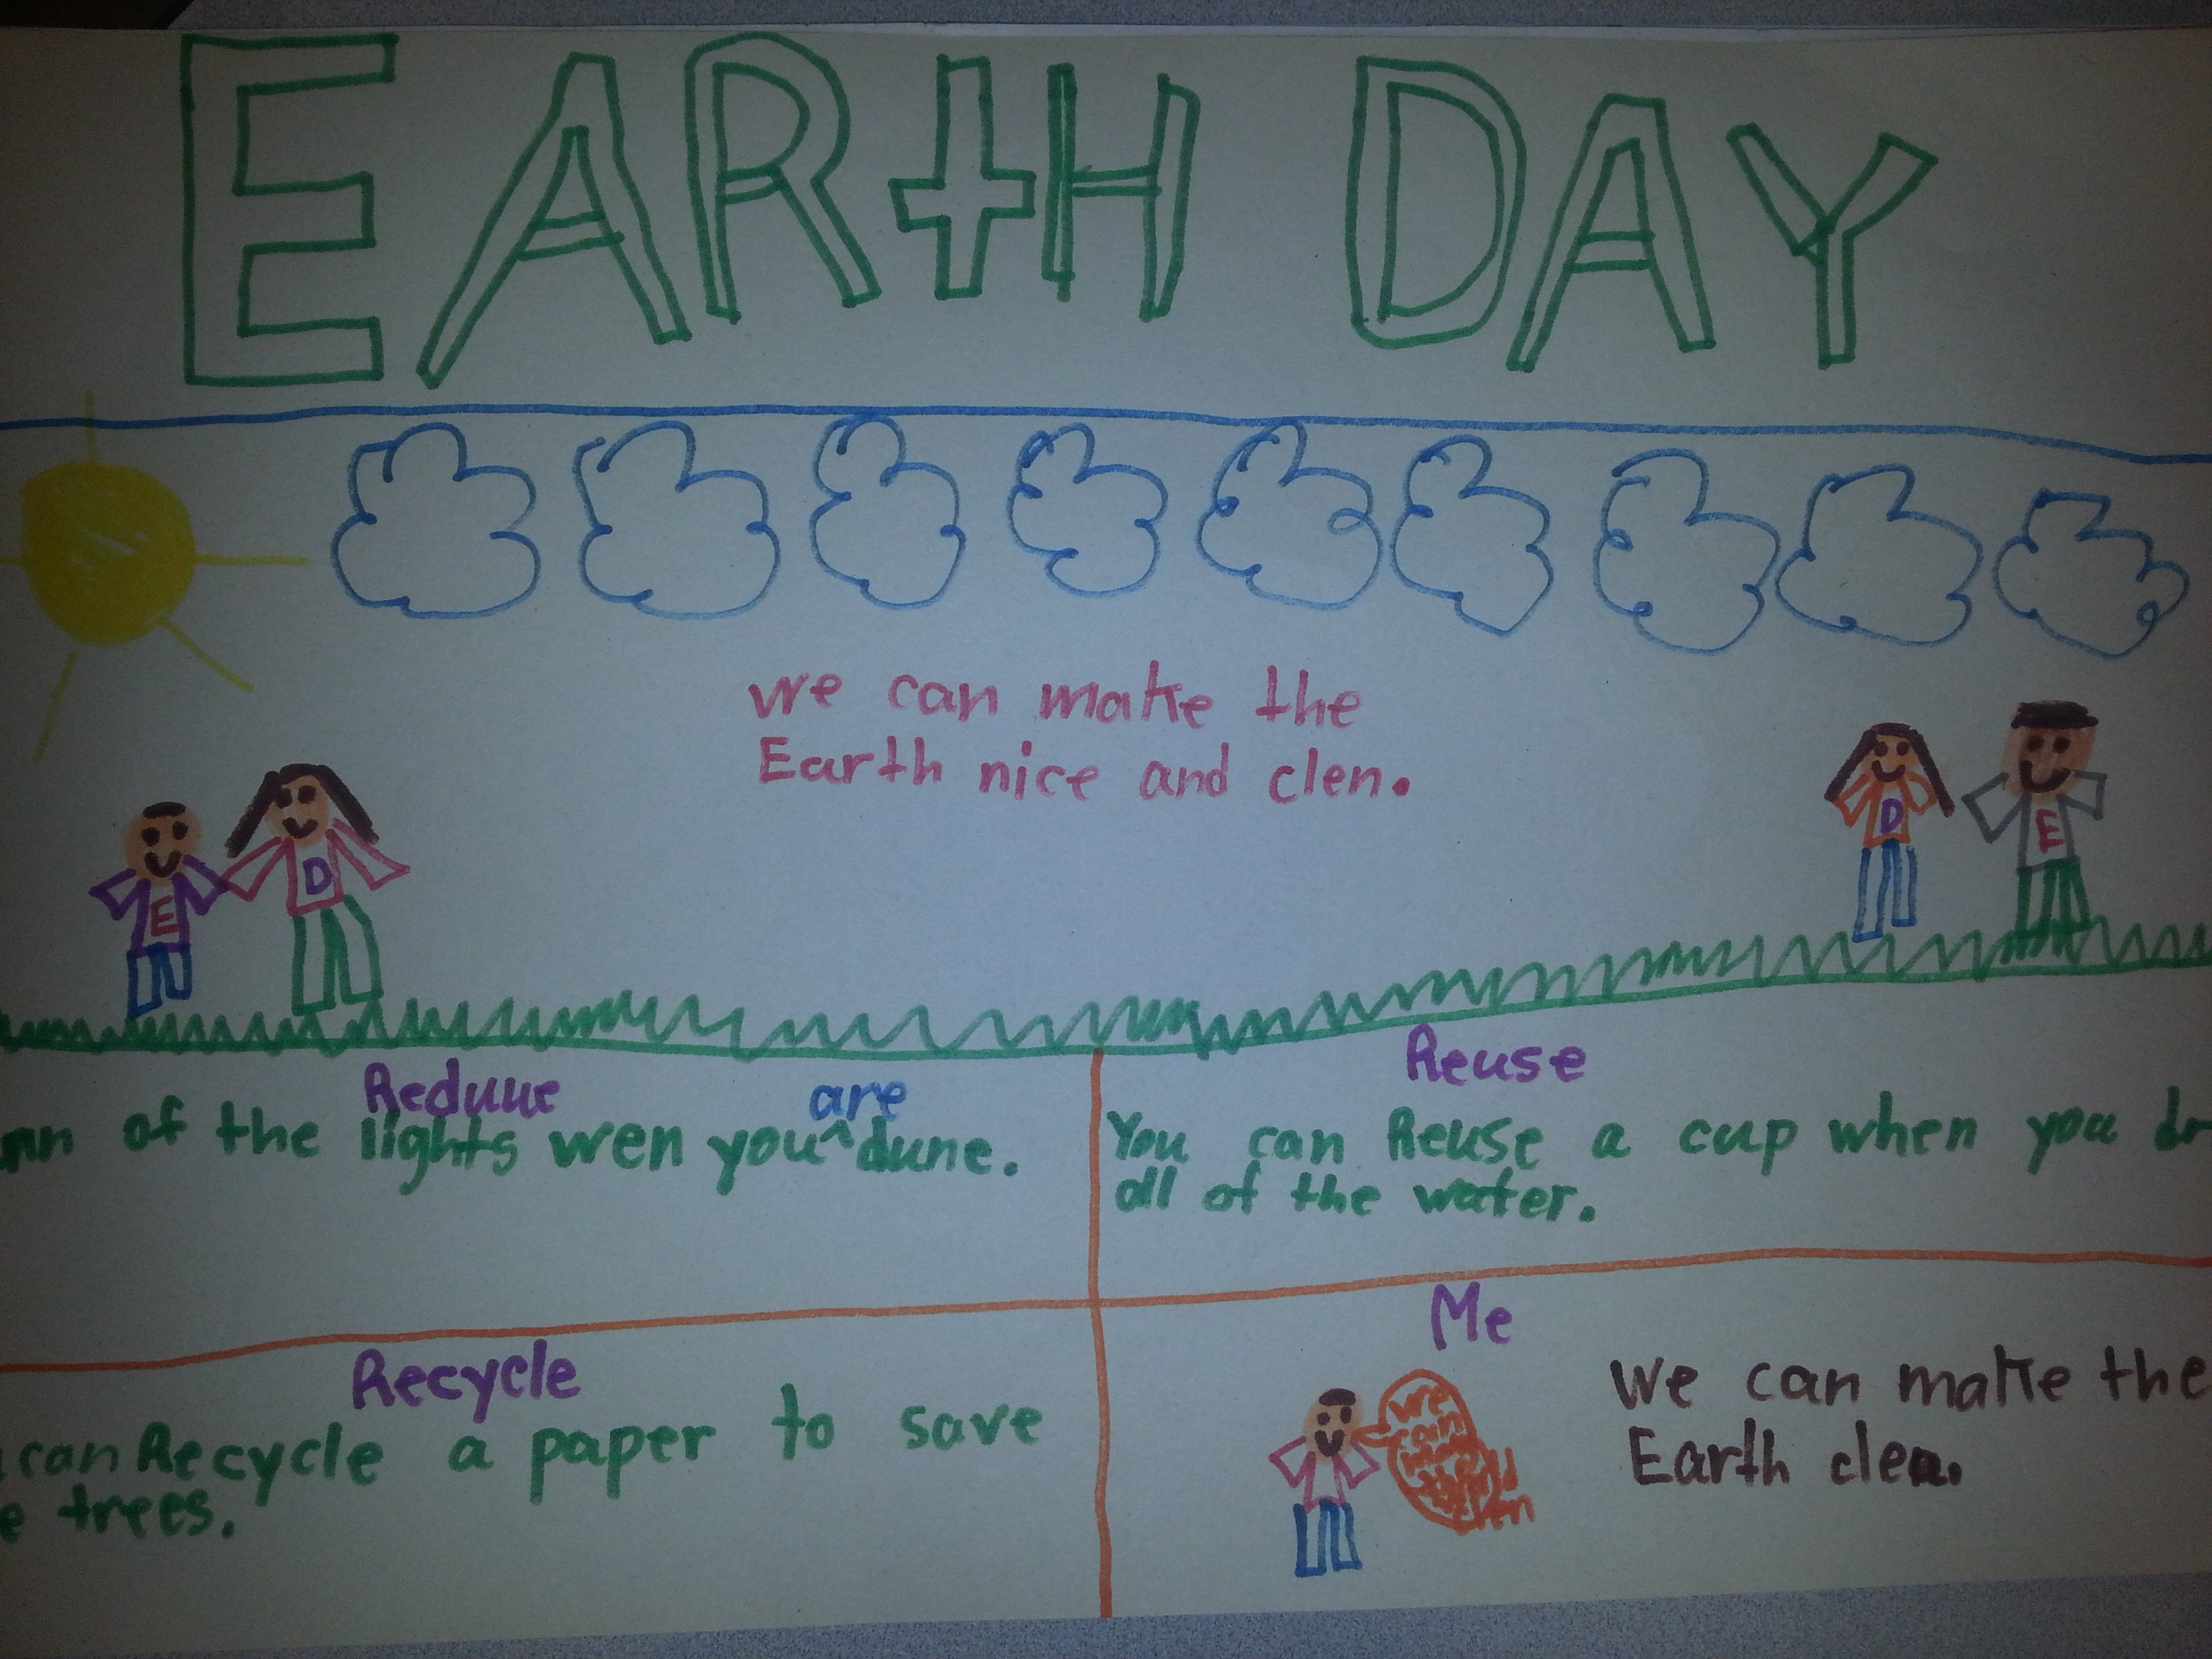 EARtH DAY
we can make the
Earth nice and clen.
E
D
D
E
Reduue
are
of the lights wen you^dune.
Reuse
You can Reuse a cup when you
all of the water.
Recycle
can Recycle a paper to save
trees.
Me
we can
We can make the
Earth clen.